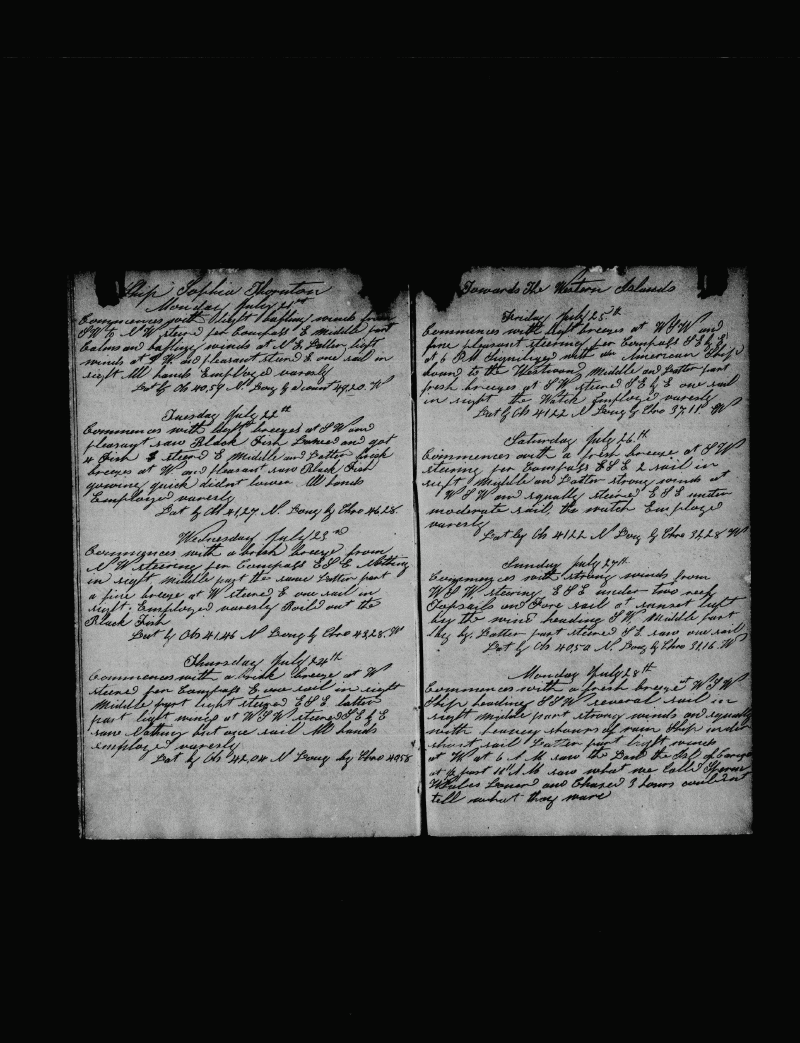 Ship Sophia Thornton
Monday July 21st
Commences with light baffling winds from
SW to NW steered per Compass E Middle part
Calms and baffling winds at N E Latter light
winds at S W and pleasant steered E one sail in
sight All hands Employed varesly
Lat by Ob 40.59 N. Long by account W
Tuesday July 22th
Commences with light breezes at SW and
pleasant saw Black Fish Lowered and got
4 Fish steered E Middle and Latter brisk
breezes at W and pleasant saw Black Fish
gowing quick didnt lower All hands
Employed varesly
Lat by Ob 41.27 N. Long by Chro 46.28
Wednesday July 23rd
Commences with a brisk breeze from
N W steering per Compass ESE Nothing
in sight Middle part the same Latter part
a fine breeze at W steered E one sail in
sight. Employed varesly Boild out the
Black Fish
Lat by Ob 41.46 N Long by Chro 43.28 W
Thursday July 24th
Commences with a brisk breeze at W
steered per Compass E one sail in sight
Middle part light steered ESE latter
part light wind at WSW steered SE by E
saw Nothing but one sail All hands
employed varesly
Lat by Ob 42.04 N Long by Chro 40.58
Towards The Western Islands
Friday July 25th
Commences with light breezes at WSW and
fine pleasant steering per Compass SE by E
at 6 PM Signilized with an American Ship
bound to the Westward Middle and Latter part
fresh breezes at SW steered SE by E one sail
in sight the Watch Employed varesly
Lat by Ob 41.22 N Long by Chro 37.11 W
Saturday July 26th
Commences with a fresh breeze at SW
steering per Compass ESE 2 sail in
sight Middle and Latter strong winds at
WSW and squally steered ESE under
moderate sail, the watch Employed
varesly
Lat by Ob 41.22 N Long by Chro 32.28 W
Sunday July 27th
Commences with strong winds from
WSW steering ESE under two reef
Topsails and Fore sail at sunset luft
by the wind heading SW Middle part
lay by. Latter part steered SE saw one sail
Lat by Ob 40.50 N. Long by Chro 32.16 W
Monday July 28th
Commences with a fresh breeze at WSW
Ship heading SSW several sail in
sight Middle part strong winds and squally
with heavey showers of rain Ship under
short sail Latter part light winds
at W at 6 A M saw the Land the Isl of Corvo
at ½ past 10 A M saw what we called Sperm
Whales Lowered and Chased 3 hours couldent
tell what they ware